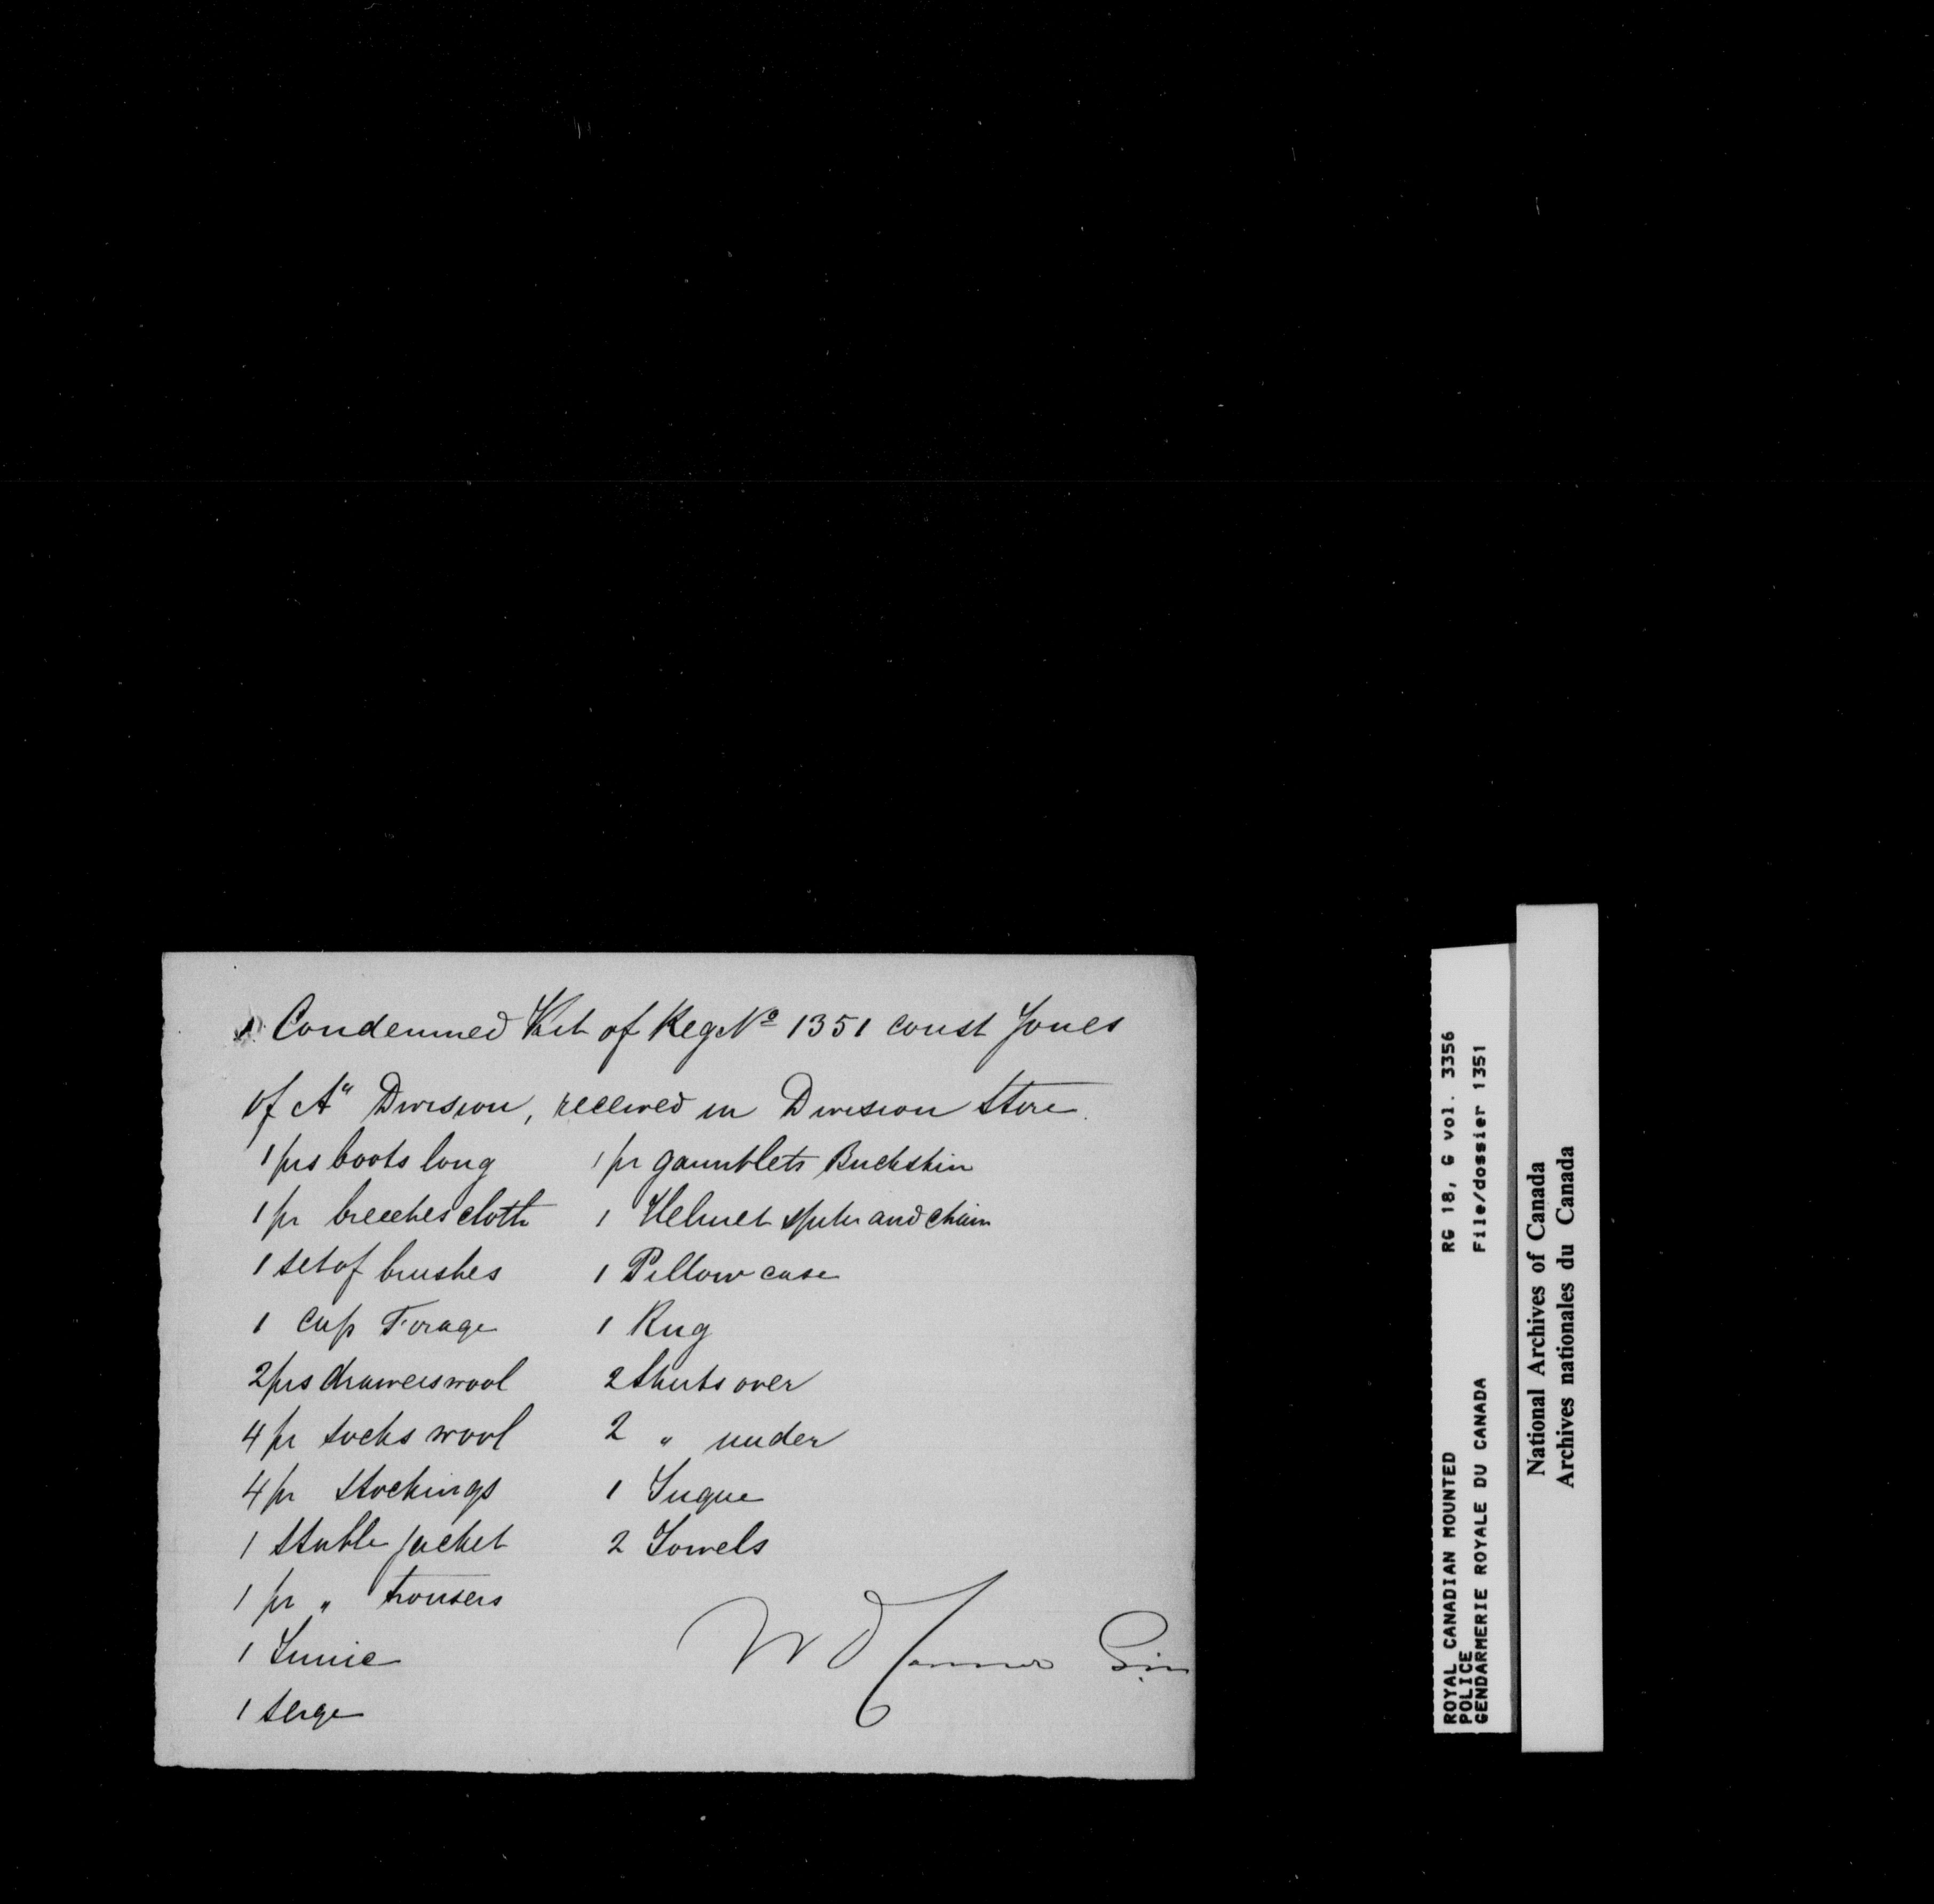 Condemned Kit of Reg Nº 1351 Const Jones
of A" Division, received in Division Store.
1 prs boots long
1 pr breeches cloth
1 set of brushes
1 Cap Forage
2 prs drawers wool
4 pr socks wool
4 pr stockings
1 Stable jacket
1 pr " trousers
1 Tunic
1 Serge
1 pr gauntlets Buckskin
1 Helmet spike and chain
1 Pillow case
1 Rug
2 Shirts over
2 " under
1 Tuque
2 Towels
W D
ROYAL CANADIAN MOUNTED RG 18, G vol. 3356
POLICE File/dossier 1351
GENDARMERIE ROYALE DU CANADA
National Archives of Canada
Archives nationales du Canada